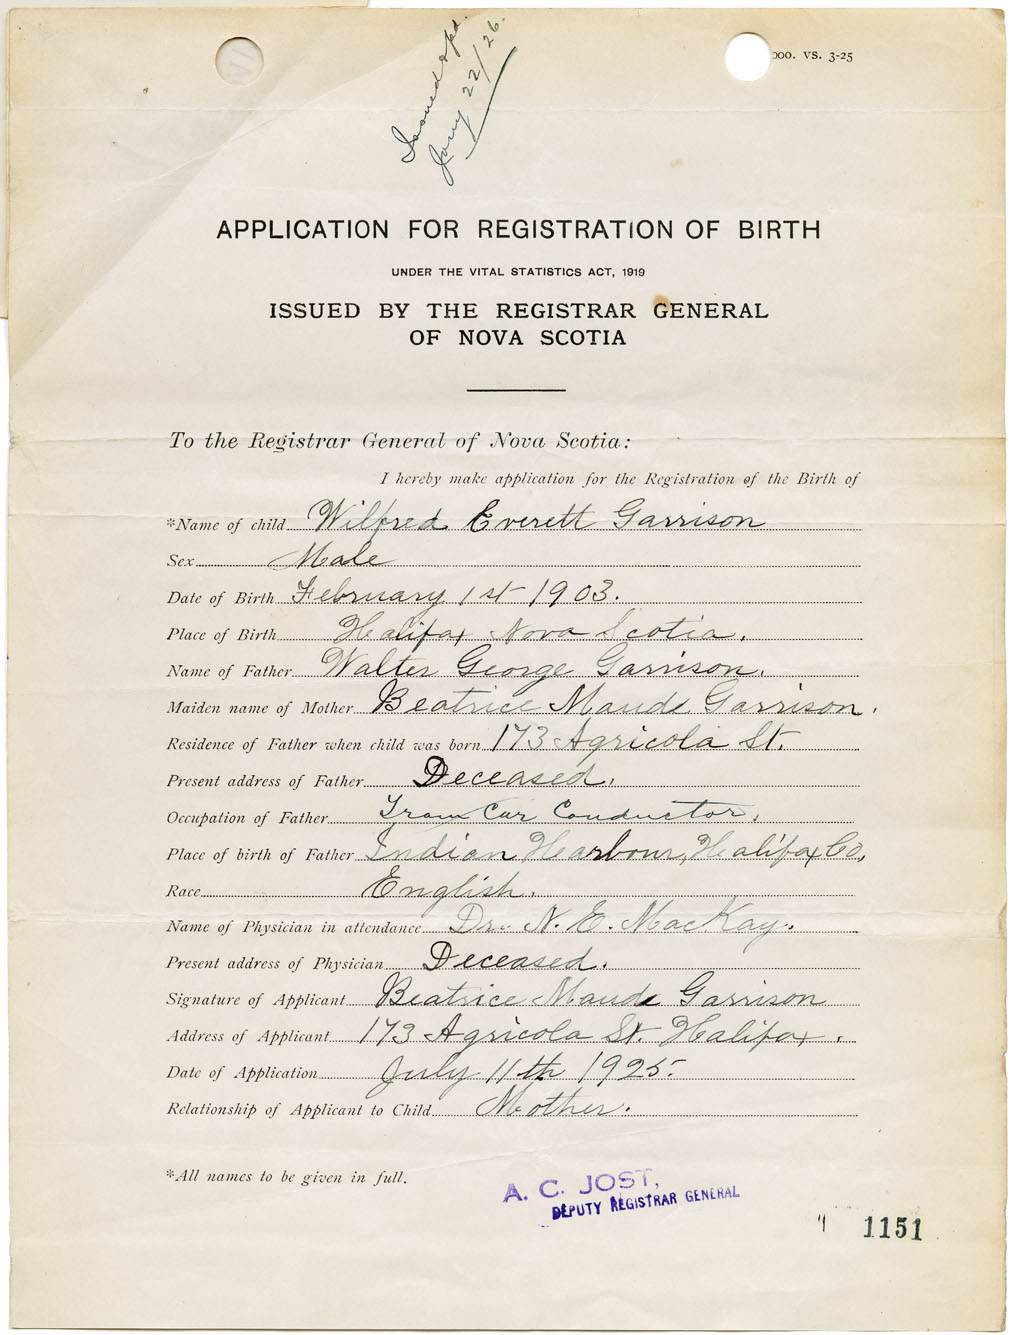 Issued & pd.
Jany 22/26.
000. VS. 3-25
APPLICATION FOR REGISTRATION OF BIRTH
UNDER THE VITAL STATISTICS ACT, 1919
ISSUED BY THE REGISTRAR GENERAL
OF NOVA SCOTIA
To the Registrar General of Nova Scotia:
I hereby make application for the Registration of the Birth of
*Name of child Wilfred Everett Garrison
Sex Male
Date of Birth February 1st 1903.
Place of Birth Halifax Nova Scotia.
Name of Father Walter George Garrison.
Maiden name of Mother Beatrice Maude Garrison.
Residence of Father when child was born 173 Agricola St.
Present address of Father Deceased.
Occupation of Father Tram Car Conductor.
Place of birth of Father Indian Harbour, Halifax Co,
Race English.
Name of Physician in attendance Dr. N. E. MacKay.
Present address of Physician Deceased.
Signature of Applicant Beatrice Maude Garrison
Address of Applicant 173 Agricola St. Halifax.
Date of Application July 11th 1925.
Relationship of Applicant to Child Mother.
*All names to be given in full.
A. C. JOST,
DEPUTY REGISTRAR GENERAL
1151